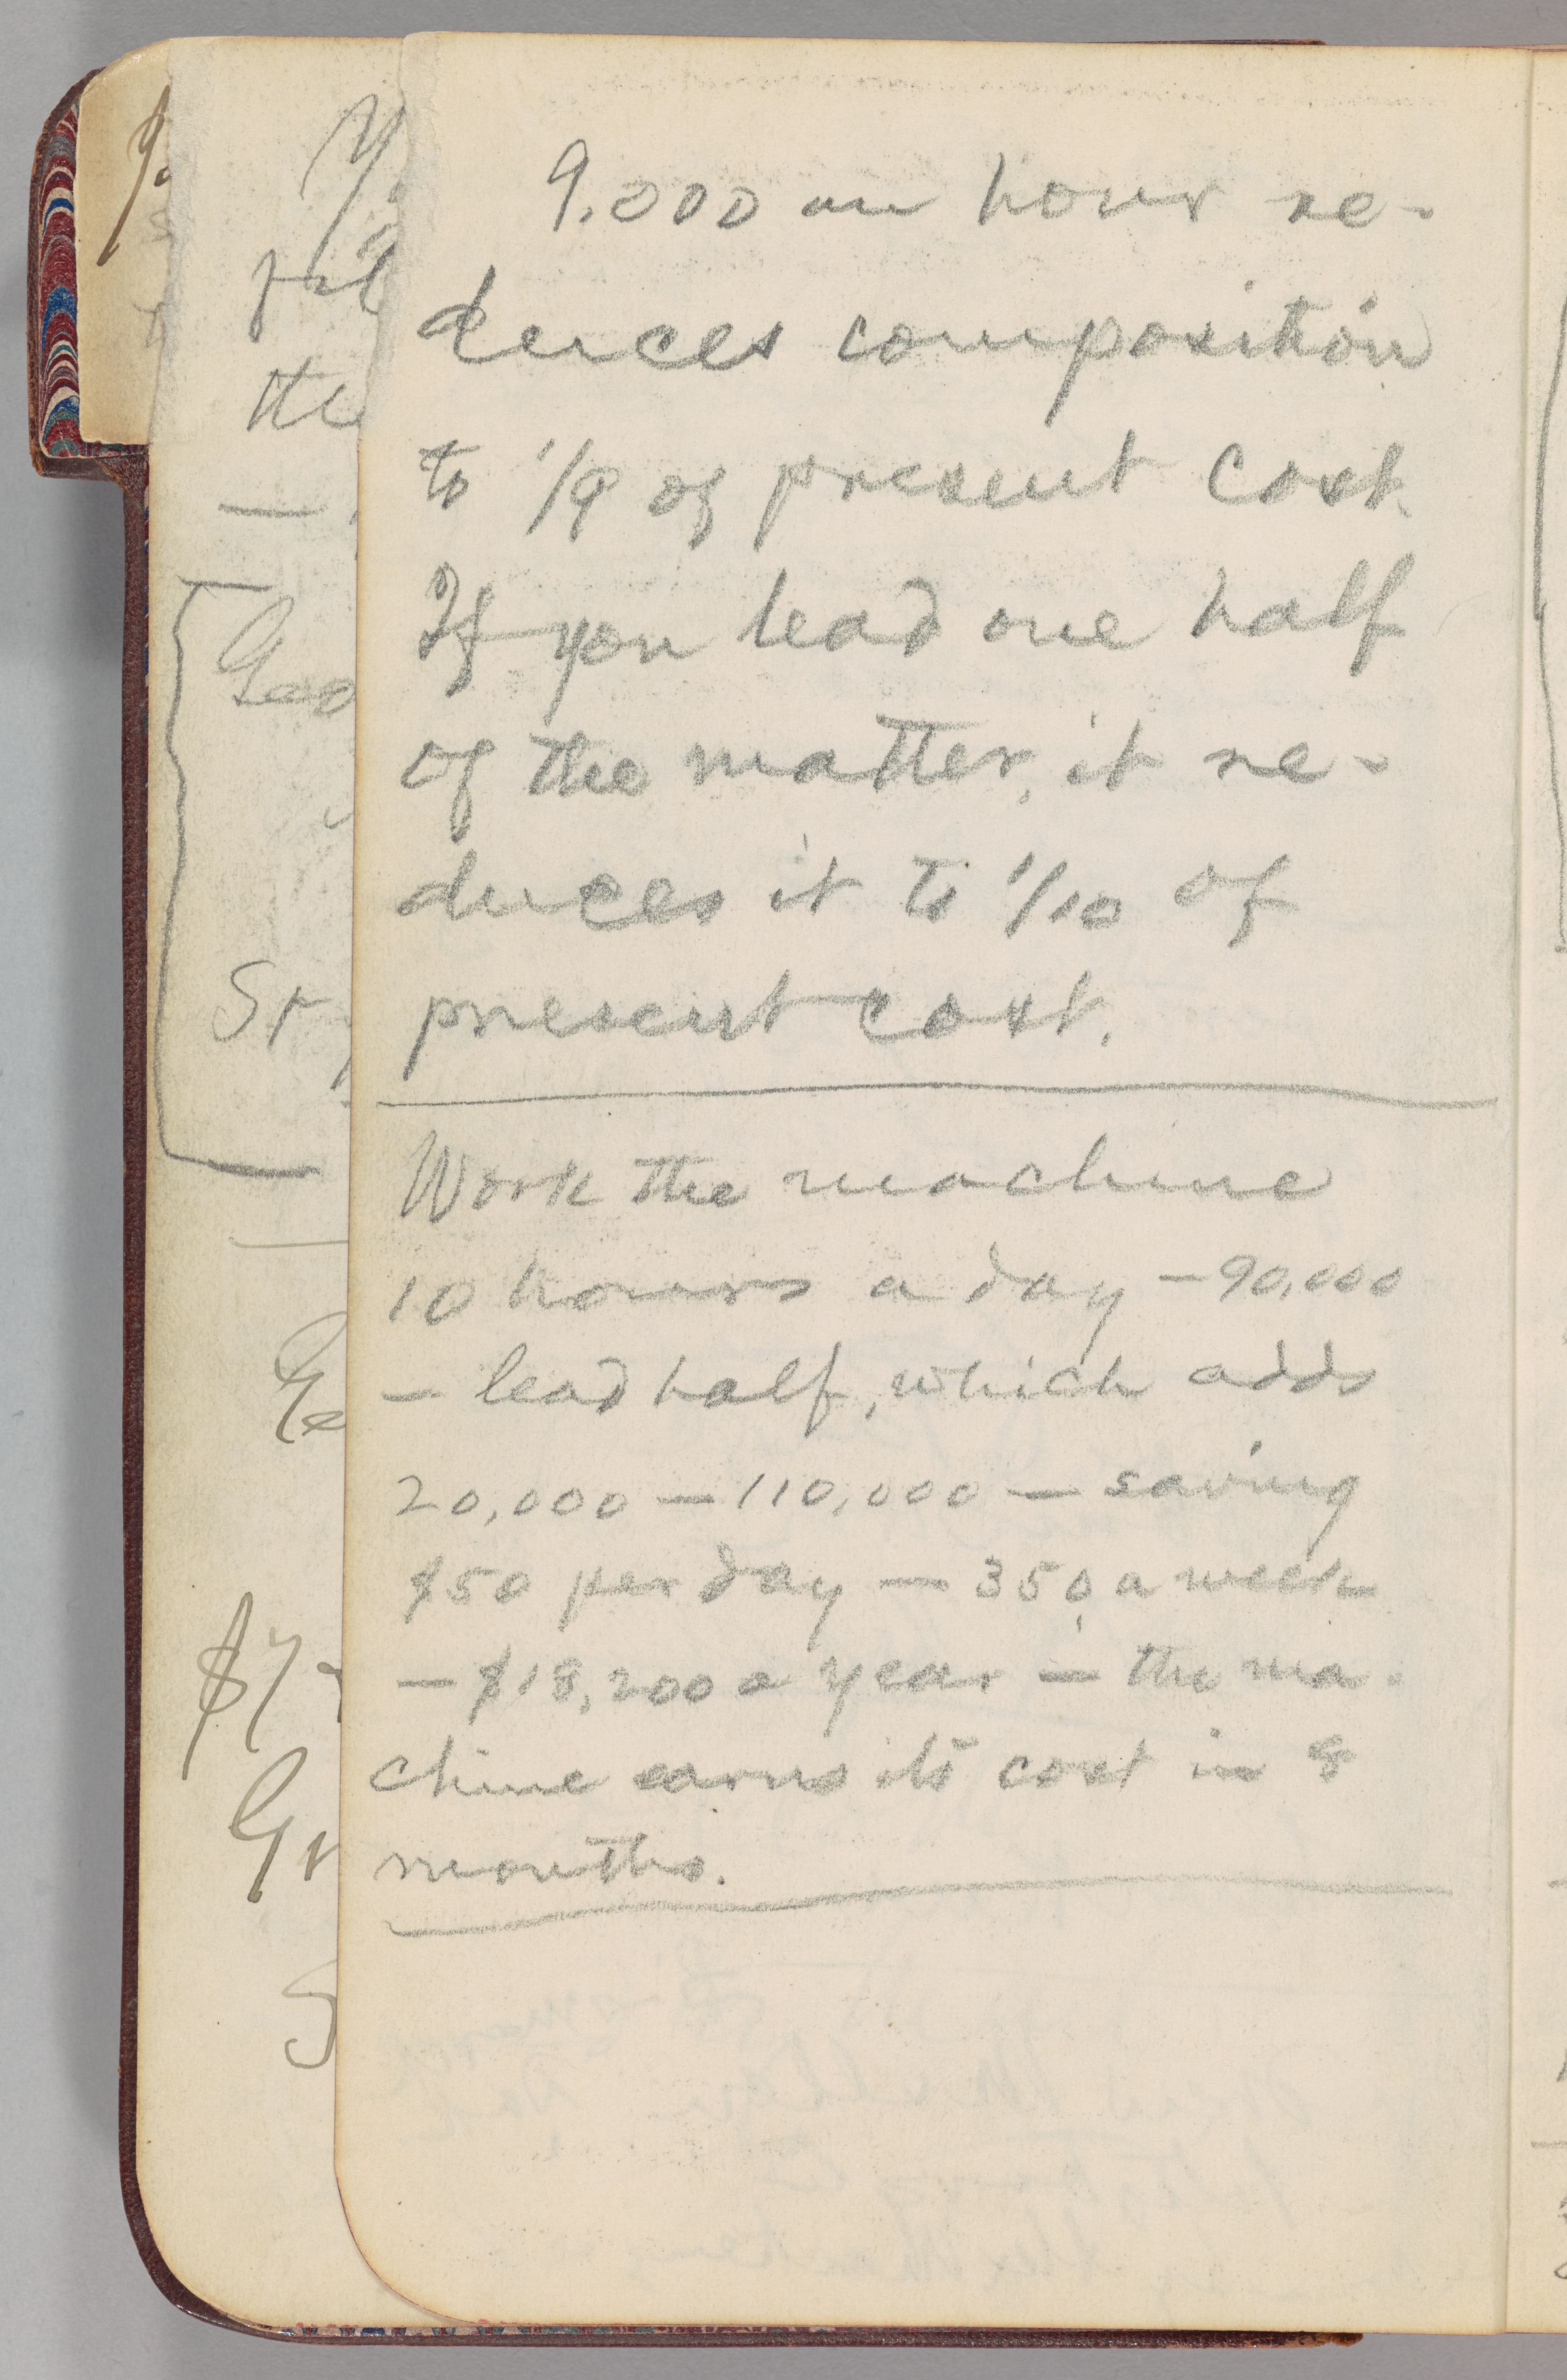 9,000 an hour re-
duces composition
to 1/9 of present cost.
If you lead one half
of the matter, it re-
duces it to 1/10 of
present cost.
Work the machine
10 hours a day — 90,000
— lead half, which adds
20,000 — 110,000 — saving
$50 per day — 350 a week
— $18,200 a year — the ma-
chine earns its cost in 8
months.